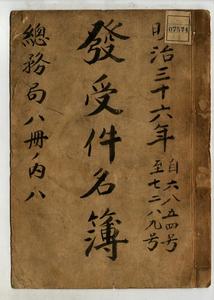 明治三十六年
自六八五四号
至七二八九号
發受件名簿
總務局八冊ノ内八
07574